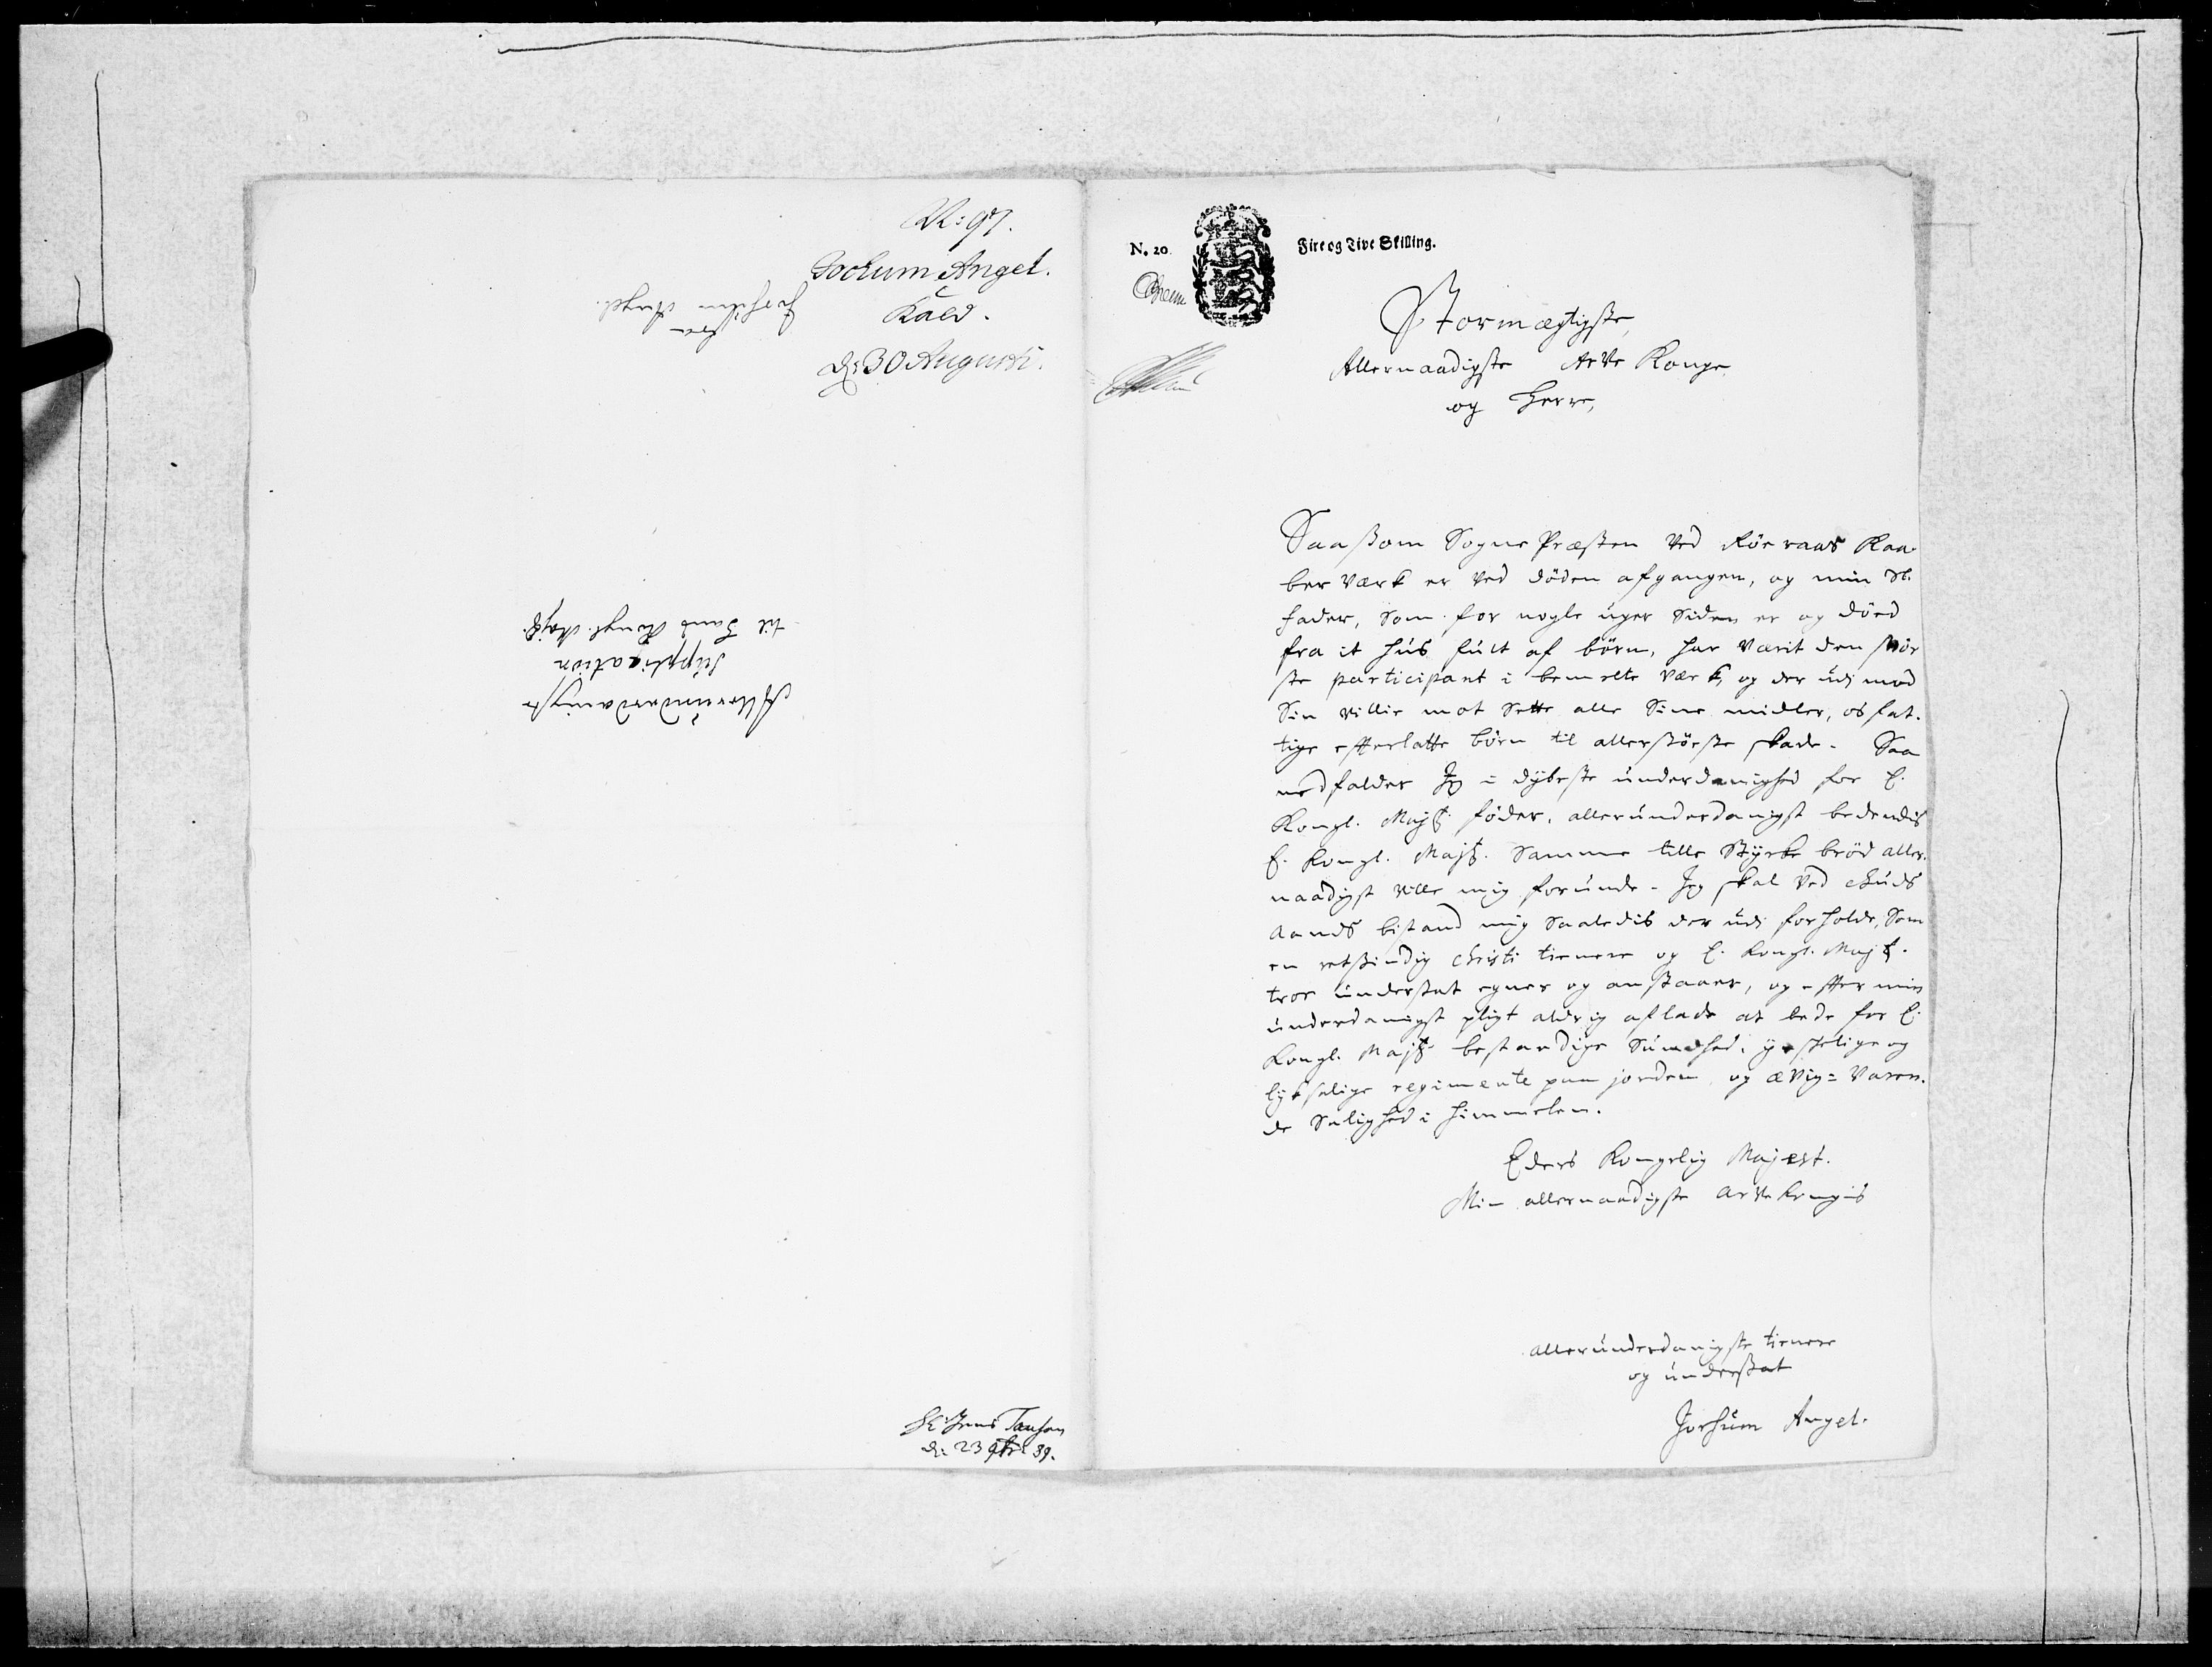 N: 97.
Jochum Angel.
Kald.
d: 30 Augusti.
fra
Jochum Angel.
Allerunderdanigste
supplication
til Hans Kongl. Majst.
Hr Jens Tausan
d: 23 9br: 89.
N. 20.
Fire og Tive Skilling.
Stormægtigste,
Allernaadigste Arve Konge
og Herre,
Saasom Sogne Præsten ved Röeraas Kaa-
ber værk er ved döden afgangen, og min Sl.
fader, som for nogle uger siden er og döed
fra it hus fult af börn, har værit den stör
ste participant i bemelte værk, og der udi mod
Sin villie mot sette alle Sine midler, os fat-
tige efterlatte börn til allerstörste skade. Saa
nedfalder Jeg i dybeste underdanighed for E.
Kongl. Majst. föder, allerunderdanigst bedendis
E. Kongl. Majst. samme lille styche bröd aller-
naadigst ville mig forunde. Jeg skal ved Guds
Aands bistand mig saaledis der udi forholde, som
en retsindig Christi tienere og E. Kongl. Majst.
troe understat egner og anstaaer, og efter min
underdanigst pligt aldrig aflade at bede for E.
Kongl. Majst. bestandige sundhed, ynskelige og
lyksalige regimente paa jorden og ævig-varen-
de Salighed i himmelen.
Eders Kongelig Majest.
Min allernaadigste Arve Kongis
allerunderdanigste tienere
og understat
Jochum Angel.